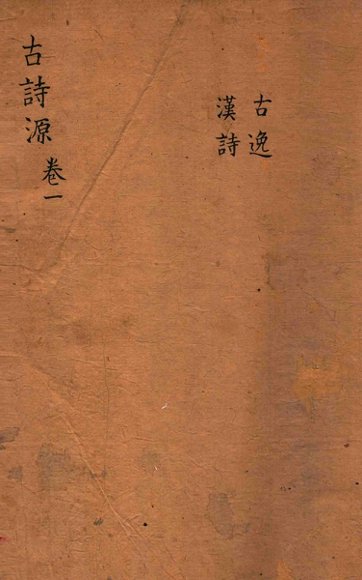 古逸
漢詩
古詩源 卷一